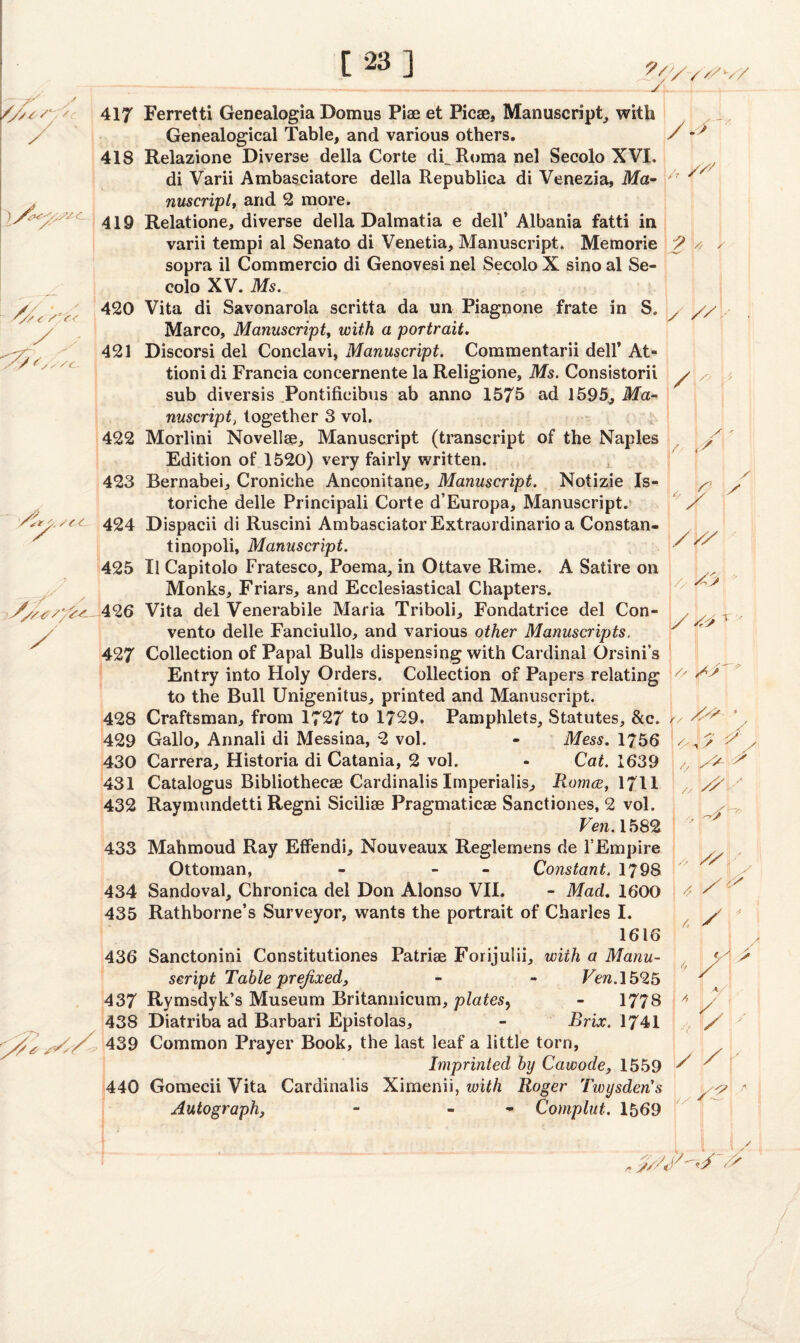 [ 23 ]
417 Ferretti Genealogia Domus Piæ et Picæ, Manuscript, with
Genealogical Table, and various others.
418 Relazione Diverse della Corte di Roma nel Secolo XVI.
di Varii Ambasciatore della Republica di Venezia, Ma-
nuscript, and 2 more.
419 Relatione, diverse della Dalmatia e dell' Albania fatti in
varii tempi al Senato di Venetia, Manuscript. Memorie
sopra il Commercio di Genovesi nel Secolo X sino al Se-
colo XV. Ms.
420 Vita di Savonarola scritta da un Piagnone frate in S.
Marco, Manuscript, with a portrait.
421 Discorsi del Conclavi, Manuscript. Commentarii dell' At-
tioni di Francia concernente la Religione, Ms. Consistorii
sub diversis Pontificibus ab anno 1575 ad 1595, Ma-
nuscript, together 3 vol.
422 Morlini Novellæ, Manuscript (transcript of the Naples
Edition of 1520) very fairly written.
423 Bernabei, Croniche Anconitane, Manuscript. Notizie Is-
toriche delle Principali Corte d'Europa, Manuscript.
424 Dispacii di Ruscini Ambasciator Extraordinario a Constan-
tinopoli, Manuscript.
425 Il Capitolo Fratesco, Poema, in Ottave Rime. A Satire on
Monks, Friars, and Ecclesiastical Chapters.
426 Vita del Venerabile Maria Triboli, Fondatrice del Con-
vento delle Fanciullo, and various other Manuscripts.
427 Collection of Papal Bulls dispensing with Cardinal Orsini's
Entry into Holy Orders. Collection of Papers relating
to the Bull Unigenitus, printed and Manuscript.
428 Craftsman, from 1727 to 1729. Pamphlets, Statutes, &c.
429 Gallo, Annali di Messina, 2 vol. - Mess. 1756
430 Carrera, Historia di Catania, 2 vol. - Cat. 1639
431 Catalogus Bibliothecæ Cardinalis Imperialis, Romæ, 1711
432 Raymundetti Regni Siciliæ Pragmaticæ Sanctiones, 2 vol.
Ven. 1582
433 Mahmoud Ray Effendi, Nouveaux Reglemens de l'Empire
Ottoman, - - - Constant. 1798
434 Sandoval, Chronica del Don Alonso VII. - Mad. 1600
435 Rathborne's Surveyor, wants the portrait of Charles I.
1616
436 Sanctonini Constitutiones Patriæ Forijulii, with a Manu-
script Table prefixed, - - Ven. 1525
437 Rymsdyk's Museum Britannicum, plates, - 1778
438 Diatriba ad Barbari Epistolas, - Brix. 1741
439 Common Prayer Book, the last leaf a little torn,
Imprinted by Cawode, 1559
440 Gomecii Vita Cardinalis Ximenii, with Roger Twysden's
Autograph, - - - Complut. 1569